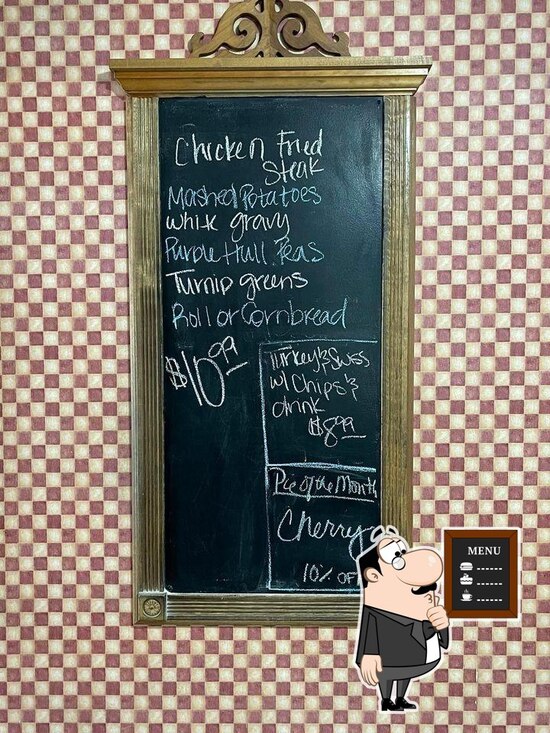 Chicken Fried
Steak
Mashed Potatoes
White gravy
Purple Hull Peas
Turnip greens
Roll or Cornbread
$10.99
Turkey & Swiss
w/ Chips &
drink
$8.99
Pie of the Month
Cherry
10% OFF
MENU